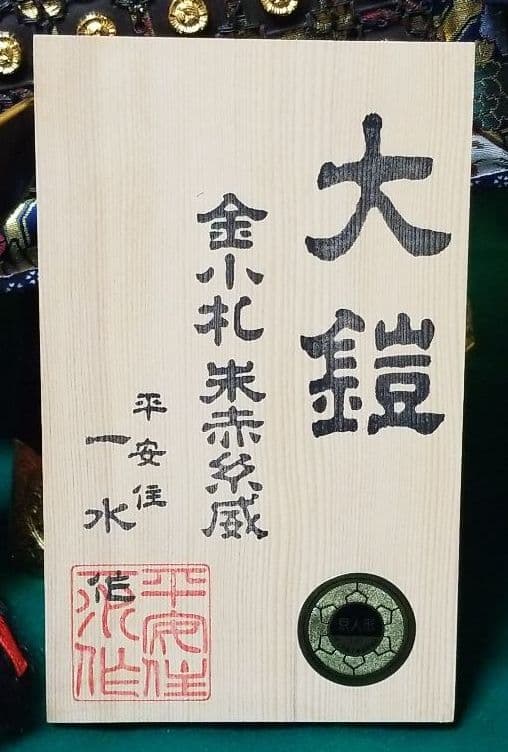 大鎧
金小札 朱赤糸威
平安住
一水
作
平安住